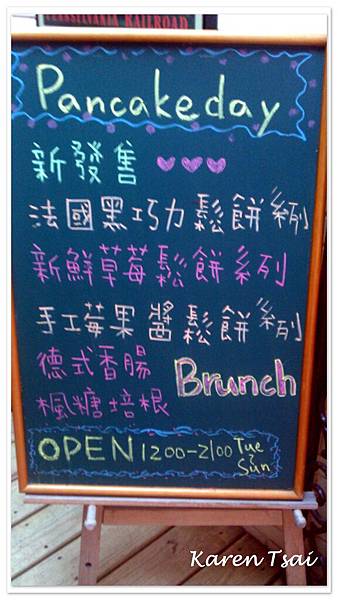 PENNSYLVANIA RAILROAD
Pancakeday
新發售
法國黑巧力鬆餅系列
新鮮草莓鬆餅系列
手工莓果醬鬆餅系列
德式香腸
楓糖培根
Brunch
OPEN 1200-2100 Tue~Sun
Karen Tsai